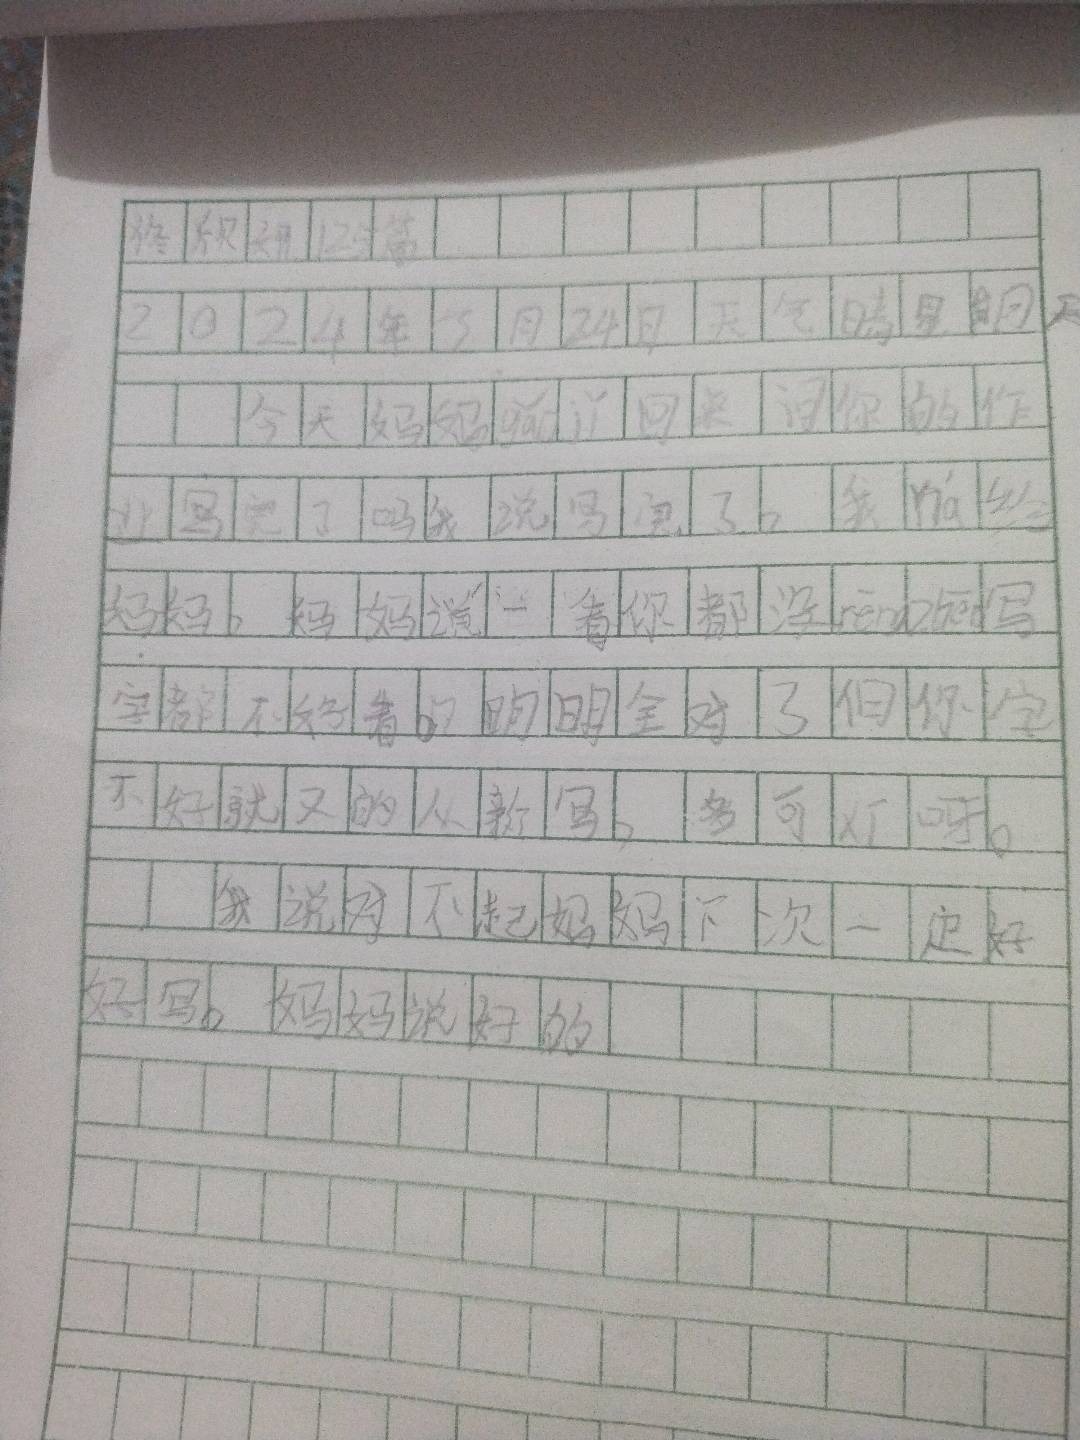 125篇
2024年5月24日天气晴星期天
今天妈妈回来问你的作
业写完了吗我说写完了。我ná给
妈妈。妈妈说一看你都没rènzhēn写
字都不好看的明明全对了但你字
不好就又的从新写,多可 呀。
我说对不起妈妈下次一定好
好写。妈妈说好的